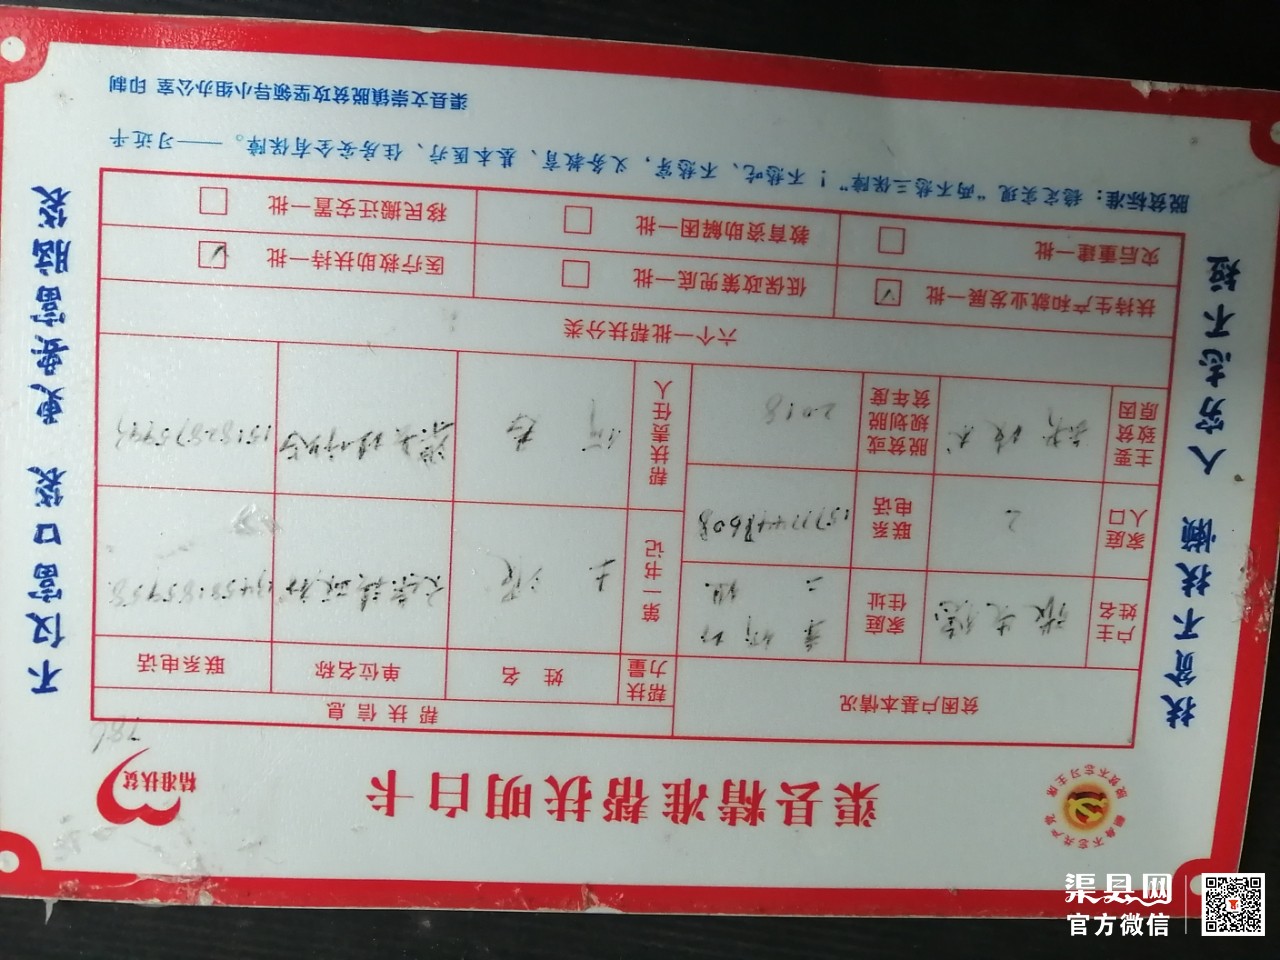 翻身不忘共产党 脱贫不忘习主席
渠县精准帮扶明白卡
精准扶贫
786
扶贫不扶懒 人穷志不短
贫困户基本情况
帮扶信息
户主姓名
家庭住址
帮扶力量
姓名
单位名称
联系电话
第一书记
家庭人口
2
联系电话
主要致贫原因
缺技术
脱贫或规划脱贫年度
2018
帮扶责任人
六个一批帮扶分类
扶持生产和就业发展一批 ☑
低保政策兜底一批 □
医疗救助扶持一批 ☑
灾后重建一批 □
教育资助解困一批 □
移民搬迁安置一批 □
不仅富口袋 更要富脑袋
脱贫标准：稳定实现“两不愁三保障”！不愁吃、不愁穿，义务教育、基本医疗、住房安全有保障。——习近平
渠县文崇镇脱贫攻坚领导小组办公室 印制
渠县网
官方微信